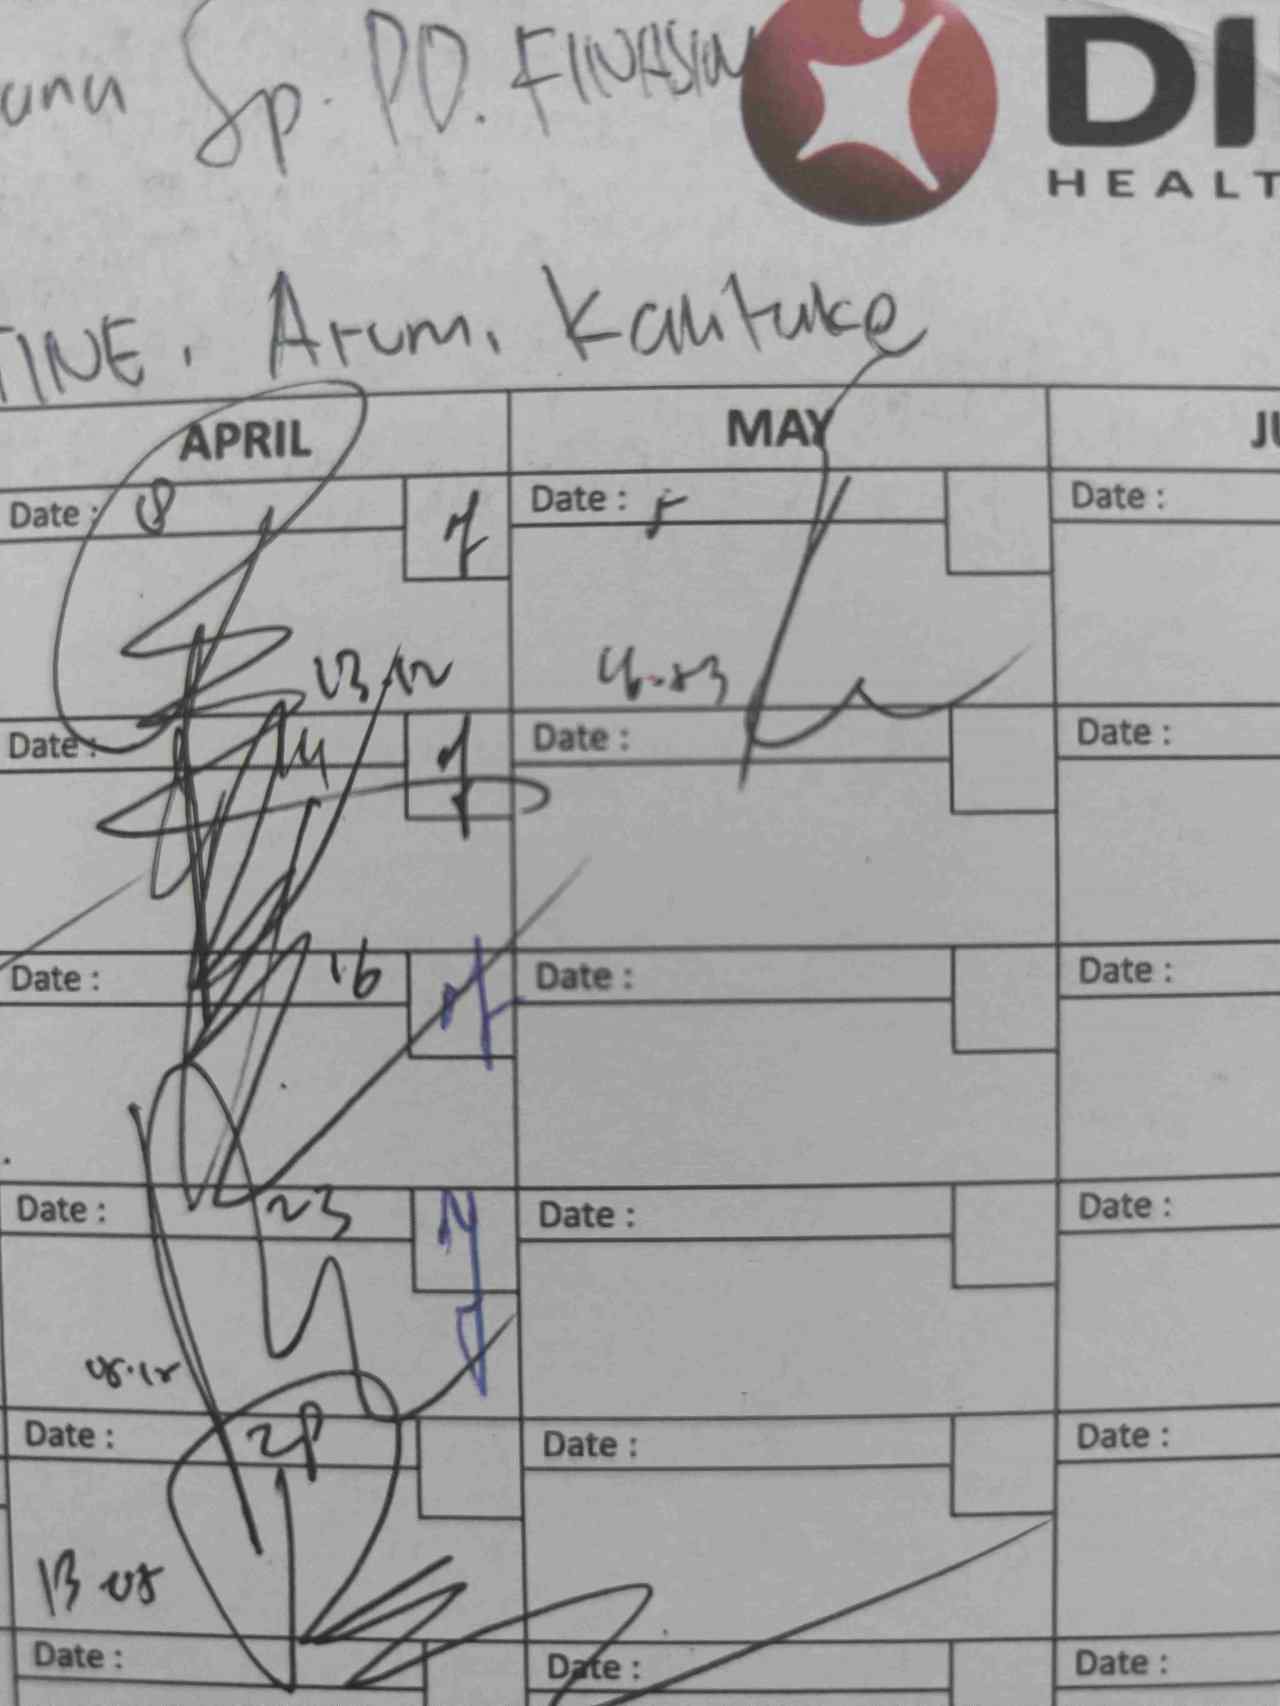 Sp. PD. FINASIM
DI
HEALT
TINE. Arum. Kalituke
APRIL MAY JU
Date: 8 Date: 5 Date:
13.12
Date: 14 Date: Date:
Date: 16 Date: Date:
Date: 23 Date: Date:
Date: 28 Date: Date:
13 08
Date: Date: Date: